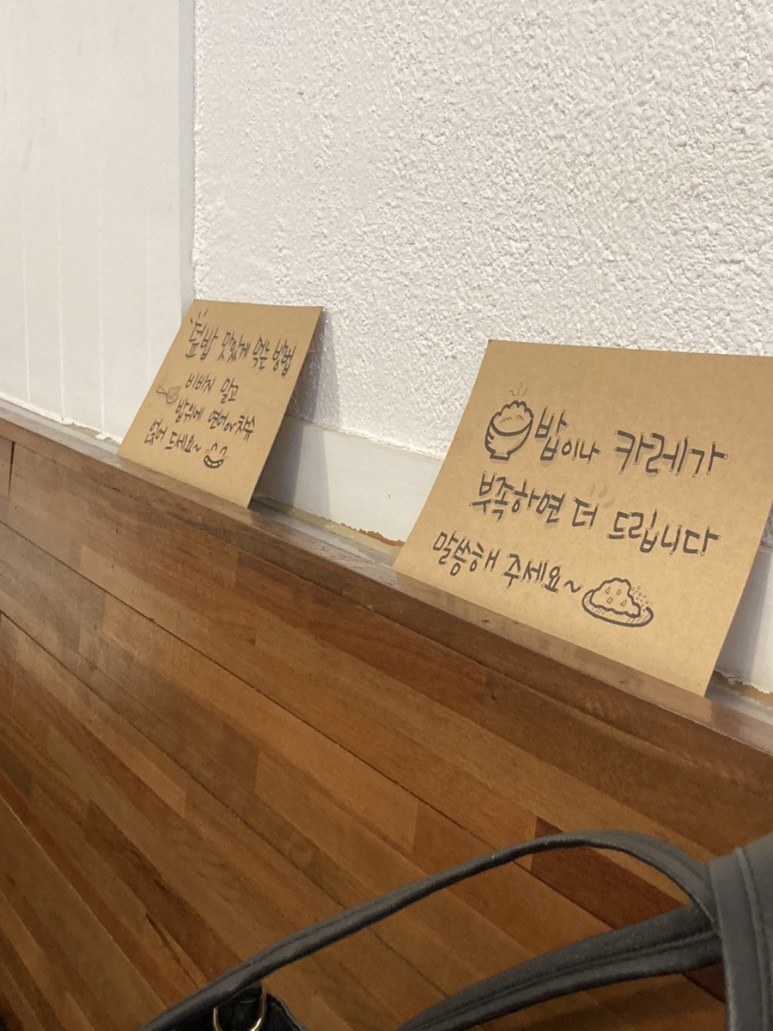 덮밥 맛있게 먹는 방법
비비지 말고
밥위에 연어or차슈
얹어 드세요~
밥이나 카레가
부족하면 더 드립니다
말씀해 주세요~